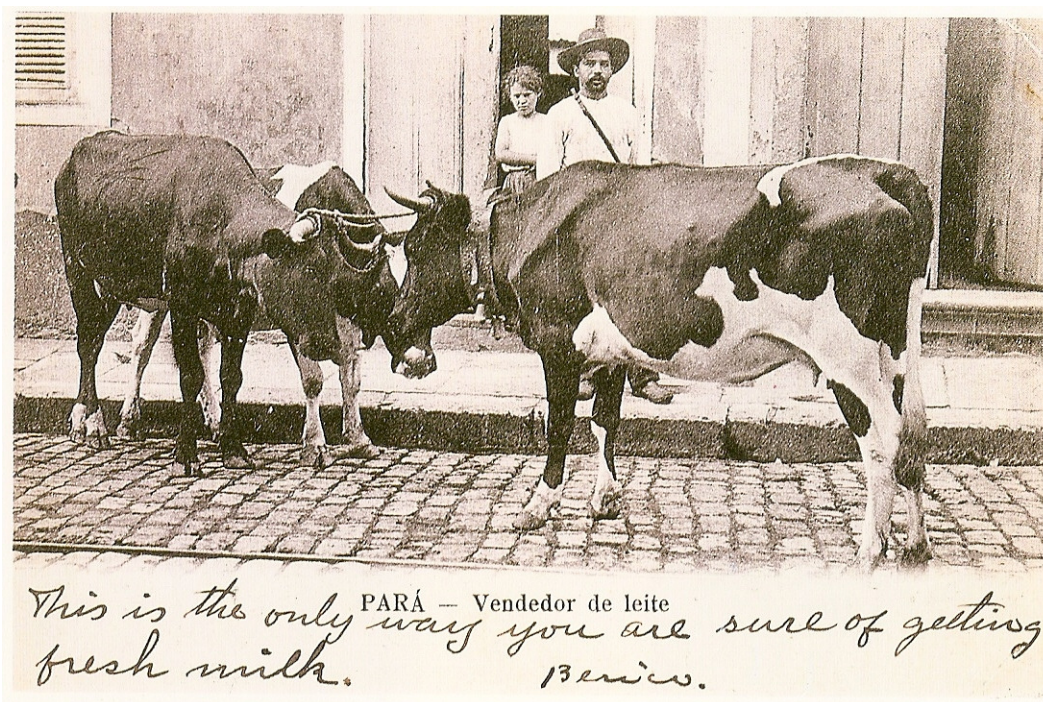 PARÁ — Vendedor de leite
This is the only way you are sure of getting
fresh milk.